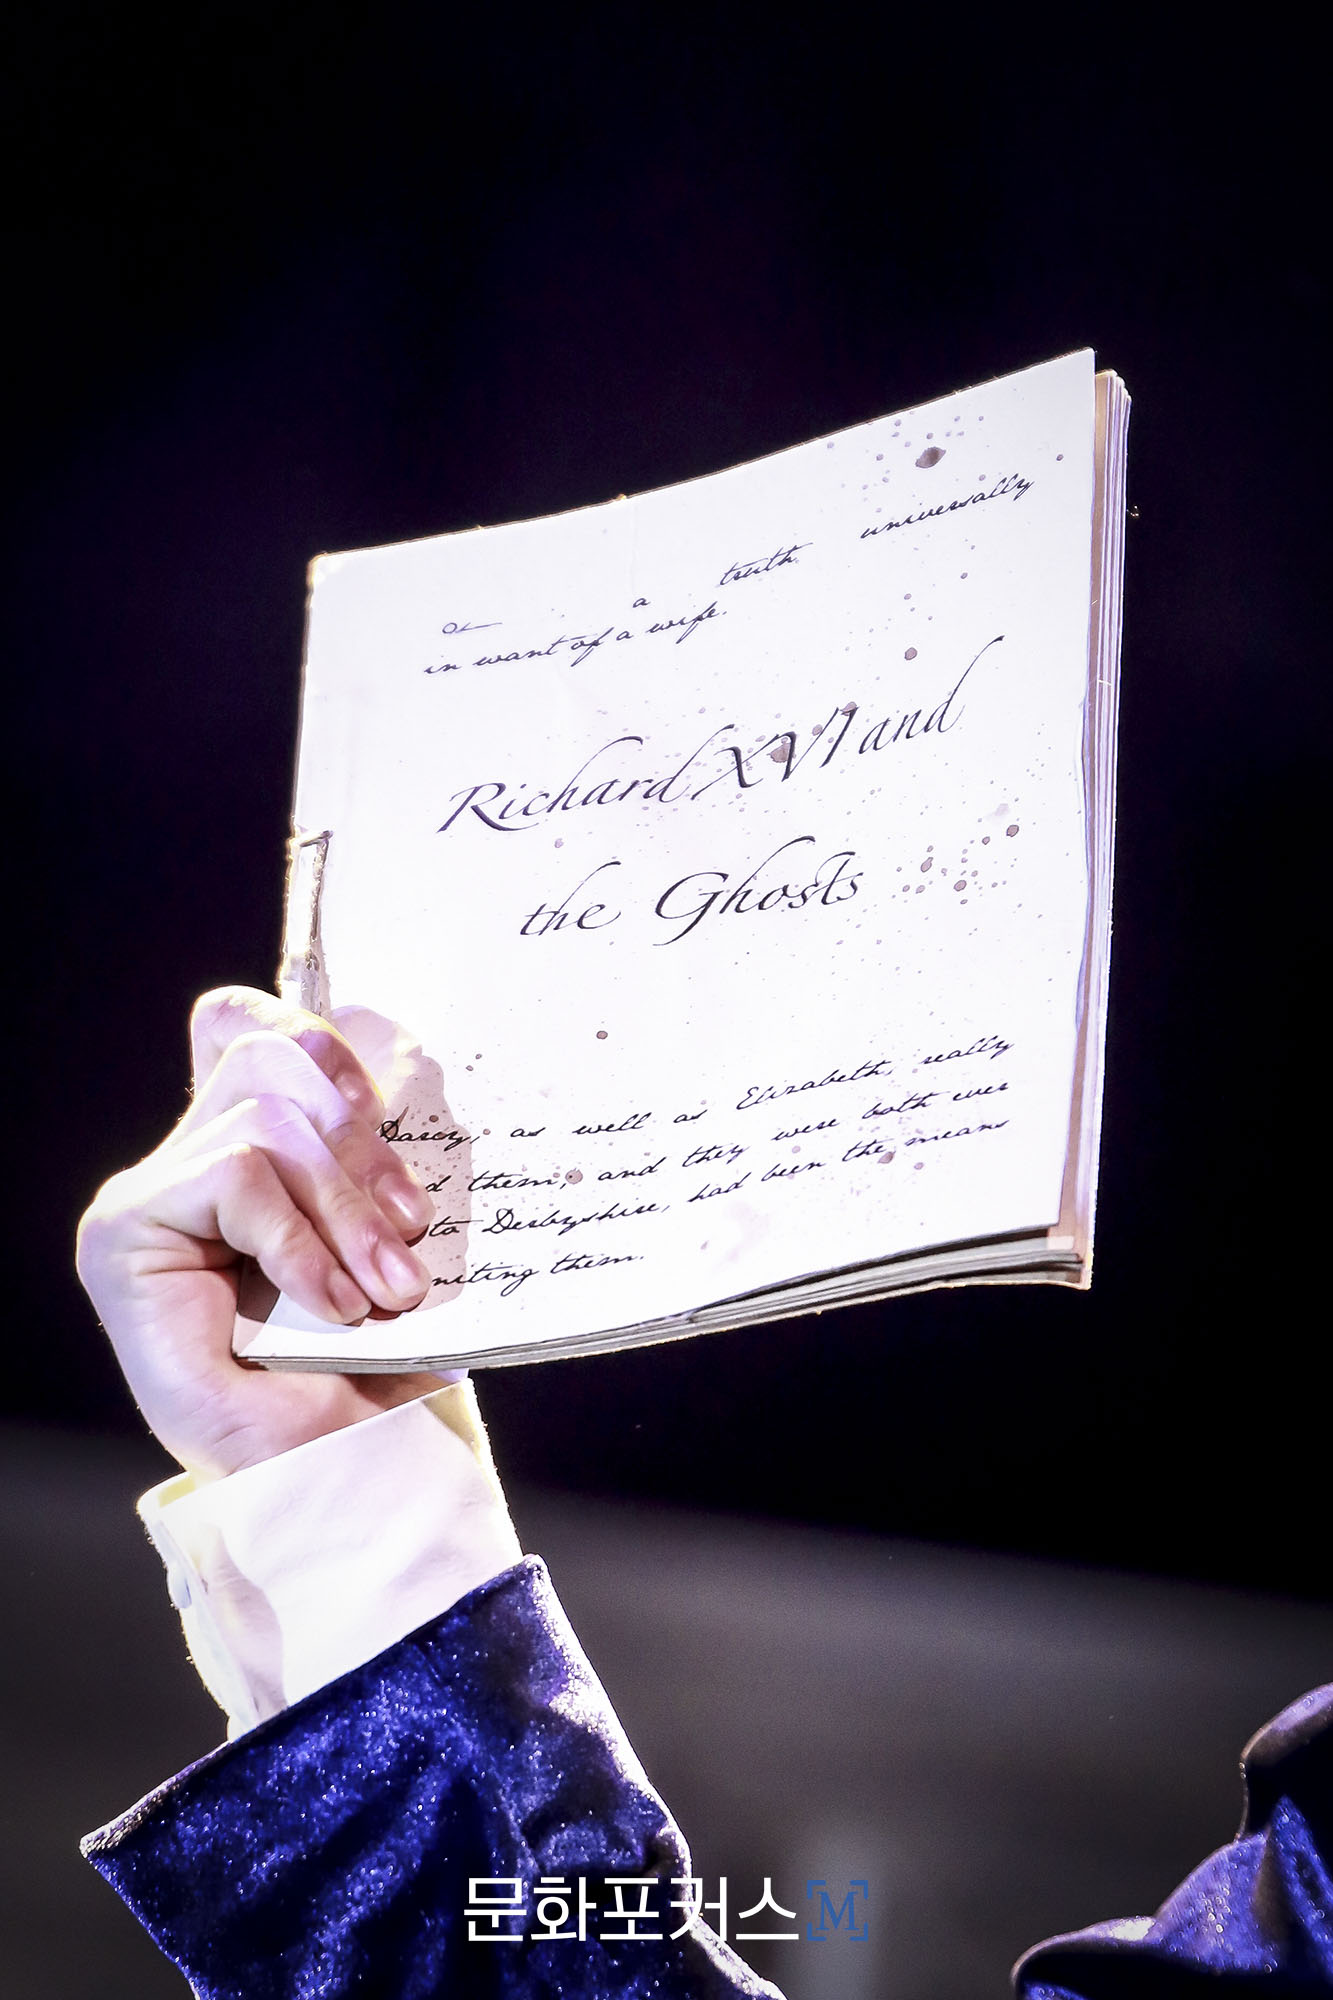 a truth universally
in want of a wife.
Richard XVI and
the Ghosts
Darcy, as well as Elizabeth, really
d them; and they were both ever
to Derbyshire, had been the means
niting them.
문화포커스 M